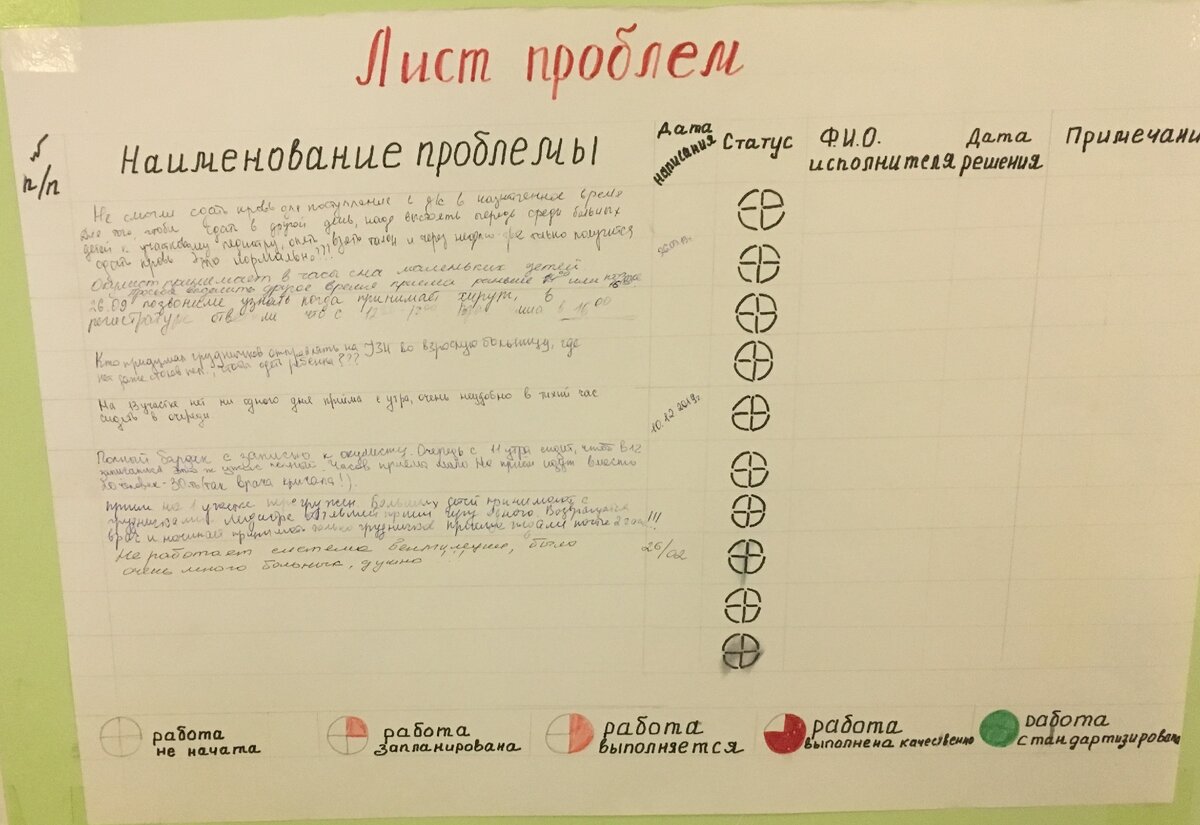 Лист проблем
№ п/п
Наименование проблемы
Дата написания
Статус
Ф.И.О. исполнителя
Дата решения
Примечани
Не смогли сдать кровь для поступления в д/с в назначенное время
Для того, чтобы сдать в другой день, надо выстоять очередь среди больных
детей к участковому педиатру, опять взять талон и через неделю только получится
сдать кровь Это нормально???
Окулист принимает в часы сна маленьких детей
Просьба другое время приема раньше или
26.09 позвонила узнать когда принимает хирург, в
регистратуре что с 12 в 16 00
Кто придумал грудничков отправлять на УЗИ во взрослую больницу, где
нет даже чтобы ребенка???
На 13 участке нет ни одного дня приёма с утра, очень неудобно в тихий час
сидеть в очереди
10.12 2019г
Полный бардак с записью к окулисту. Очередь с 11 утра сидит, чтоб в 12
записаться Это ж ужас полный. Часов приёма мало На прием идут вместо
20 человек - 30 ть (так врача кричала!).
прием на 1 участке перегружен. Больших детей принимают с
грудничками
врач и начинает принимать только грудничков после 2 !!!
Не работает система вентиляции, было
очень много больных, душно !!!
26/02
работа
не начата
работа
запланирована
работа
выполняется
работа
выполнена качественно
работа
стандартизирована